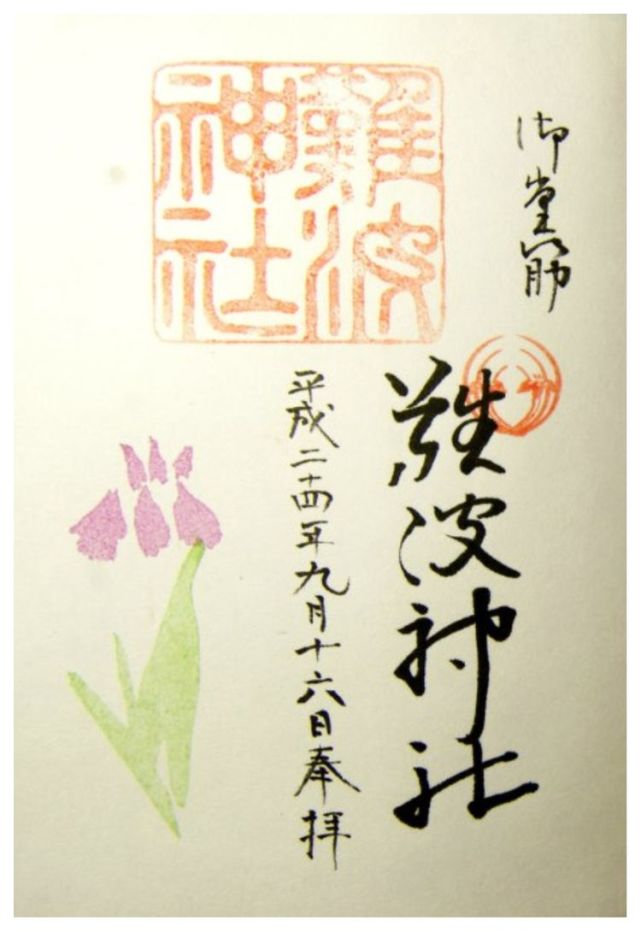 御堂筋
難波神社
平成二十四年九月十六日奉拝
難波神社